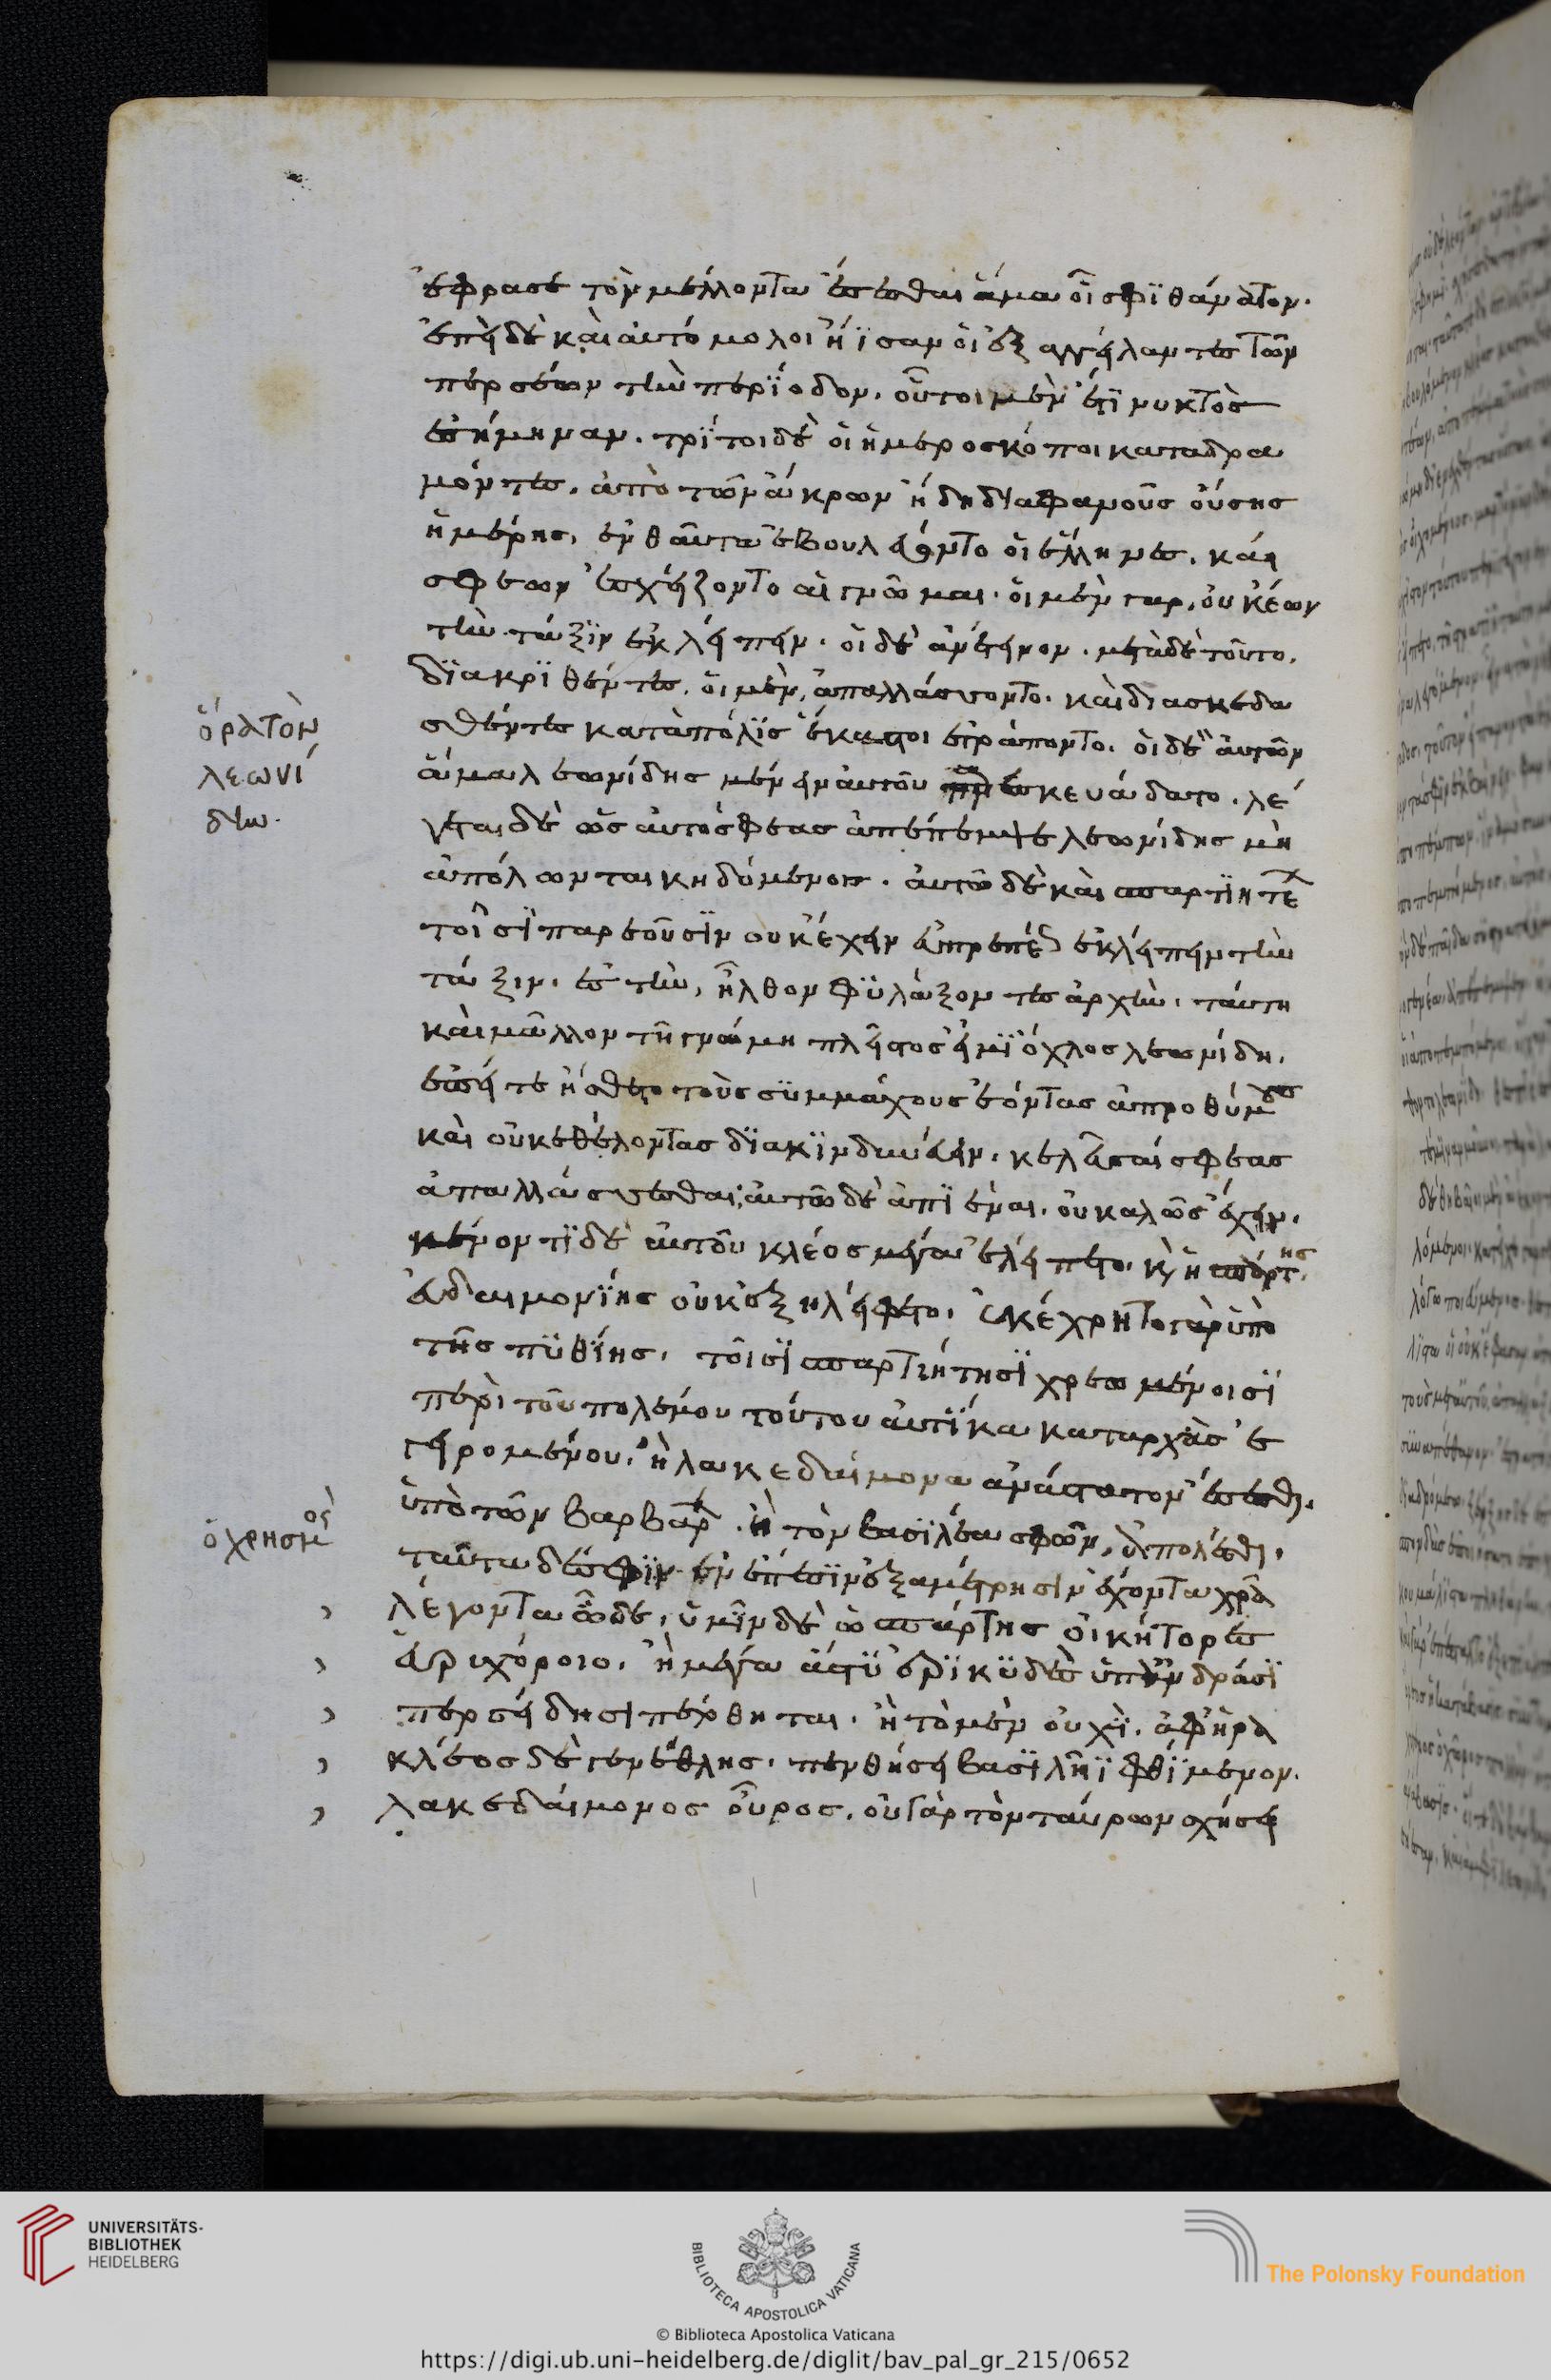 ἔφρασε τὸν μέλλοντα ἔσεσθαι ἅμα οἷ σφϊ θάνατον.
ἐπεὶ δὲ καὶ αὐτόμολοι ἤϊσαν οἱ ἐξαγγείλαντες τῶν
περσέων τὴν περΐοδον. οὗτοι μὲν ἔτϊ νυκτὸς
ἐσήμηναν. τρΐτοι δὲ οἱ ἡμεροσκόποι καταδρα
μόντες. ἀπὸ τῶν ἄκρων ἤδη διαφανοῦς οὔσης
ἡμέρης. ἐνθαῦτα ἐβουλεύοντο οἱ ἕλληνες. καί
σφεων ἐσχείζοντο αἱ γνῶμαι. οἱ μὲν γαρ, οὐκ ἔων
τὴν τάξϊν ἐκλείπειν. οἱ δὲ ἀντέτεινον. μετὰ δὲ τοῦτο.
δϊακρϊθέντες. οἱ μὲν, ἀπαλλάσσοντο. καὶ διασκεδα
σθέντες κατὰ πόλϊς ἕκαστοι ἐτράποντο. οἱ δὲ αὐτῶν
ἅμα λεωνίδης μένειν αὐτοῦ παρεσκευάδατο. λέ
γεται δὲ ὡς αὐτός σφεας ἀπέπεμψε λεωνίδης μὴ
ἀπόλωνται κηδόμενος. αὐτῶ δὲ καὶ σπαρτϊητέ
τοῖσϊ παρεοῦσϊν οὐκ ἔχειν εὐπρεπέως ἐκλείπειν τὴν
τάξιν. ἐς τὴν, ἦλθον φϋλάξοντες ἀρχὴν. ταύτη
καὶ μᾶλλον τῆ γνώμη πλεῖστος εἰμϊ ὄχλος λεωνίδη.
ἐπεί τε ἤσθετο τοὺς συμμάχους ἐόντας ἀπροθύμους
καὶ οὐκ ἐθέλοντας δϊακϊνδυνεύειν. κελεῦσαί σφεας
ἀπαλλάσσεσθαι, αὐτῶ δὲ ἀπϊέναι. οὐ καλῶς ἔχειν.
μένοντϊ δὲ αὐτοῦ κλέος μέγα ἐλείπετο. κ(αὶ) ἡ σπάρτης
εὐδαιμονΐης οὐκ ἐξηλείφετο. ἐκέχρητο γὰρ ὑπὸ
τῆς πϋθΐης. τοῖσϊ σπαρτϊήτησϊ χρεωμένοισϊ
περὶ τοῦ πολέμου τούτου αὐτΐκα καταρχὰς ἐ
γειρομένου. ἢ λακεδαίμονα ἀνάστατον ἔσεσθαι.
ὑπὸ τῶν βαρβάρων. ἢ τὸν βασϊλέα σφῶν, ἀπολέσθαι.
ταῦτα δέ σφϊν ἐν ἔπεσϊν ἑξαμέτρησϊν ἔχοντα χρᾶ
λέγοντα ὧδε. ὑμῖν δὲ ὦ σπάρτης οἰκήτορες
εὐριχόροιο. ἢ μέγα ἄστϋ ἐρϊκϋδὲς ὑπ ἀνδράσϊ
περσείδησι πέρθηται. ἢ τὸ μὲν οὐχὶ. ἀφ ἡρα
κλέεος δὲ γενέθλης. πενθήσει βασϊλῆϊ φθΐμενον.
λακεδαίμονος οὖρος. οὐ γὰρ τὸν ταύρων σχήσει
ὅρα τὸν
λεωνί
δην.
ὁ χρησμὸς
UNIVERSITÄTS-
BIBLIOTHEK
HEIDELBERG
BIBLIOTECA APOSTOLICA VATICANA
The Polonsky Foundation
© Biblioteca Apostolica Vaticana
https://digi.ub.uni-heidelberg.de/diglit/bav_pal_gr_215/0652